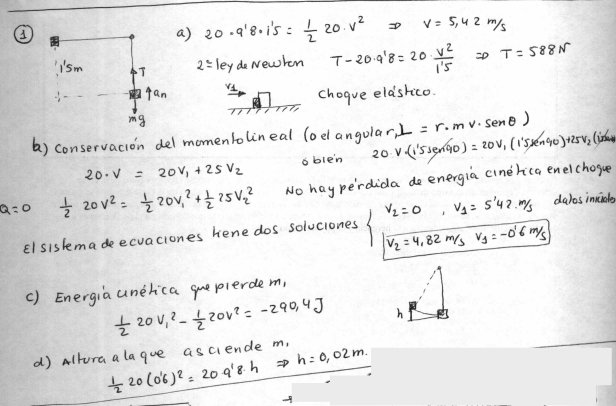 ① a) 20·9'8·1'5 = 1/2 20·v² ⇒ v = 5,42 m/s
1'5m T an mg
2ª ley de Newton T-20·9'8 = 20 v²/1'5 ⇒ T = 588N
v₁ Choque elástico.
b) Conservación del momento lineal (o el angular, L = r·m v·senθ)
20·v = 20v₁ + 25v₂ o bien 20 v·(1'5 sen90) = 20v₁(1'5 sen90)+25v₂(
Q=0 1/2 20v² = 1/2 20v₁² + 1/2 25v₂² No hay pérdida de energía cinética en el choque
El sistema de ecuaciones tiene dos soluciones { v₂=0 , v₁ = 5'42 m/s datos iniciales
v₂ = 4,82 m/s v₁ = -0'6 m/s
c) Energía cinética que pierde m₁
1/2 20v₁² - 1/2 20v² = -290,4 J
h
d) Altura a la que asciende m₁
1/2 20(0'6)² = 20·9'8·h ⇒ h = 0,02m.